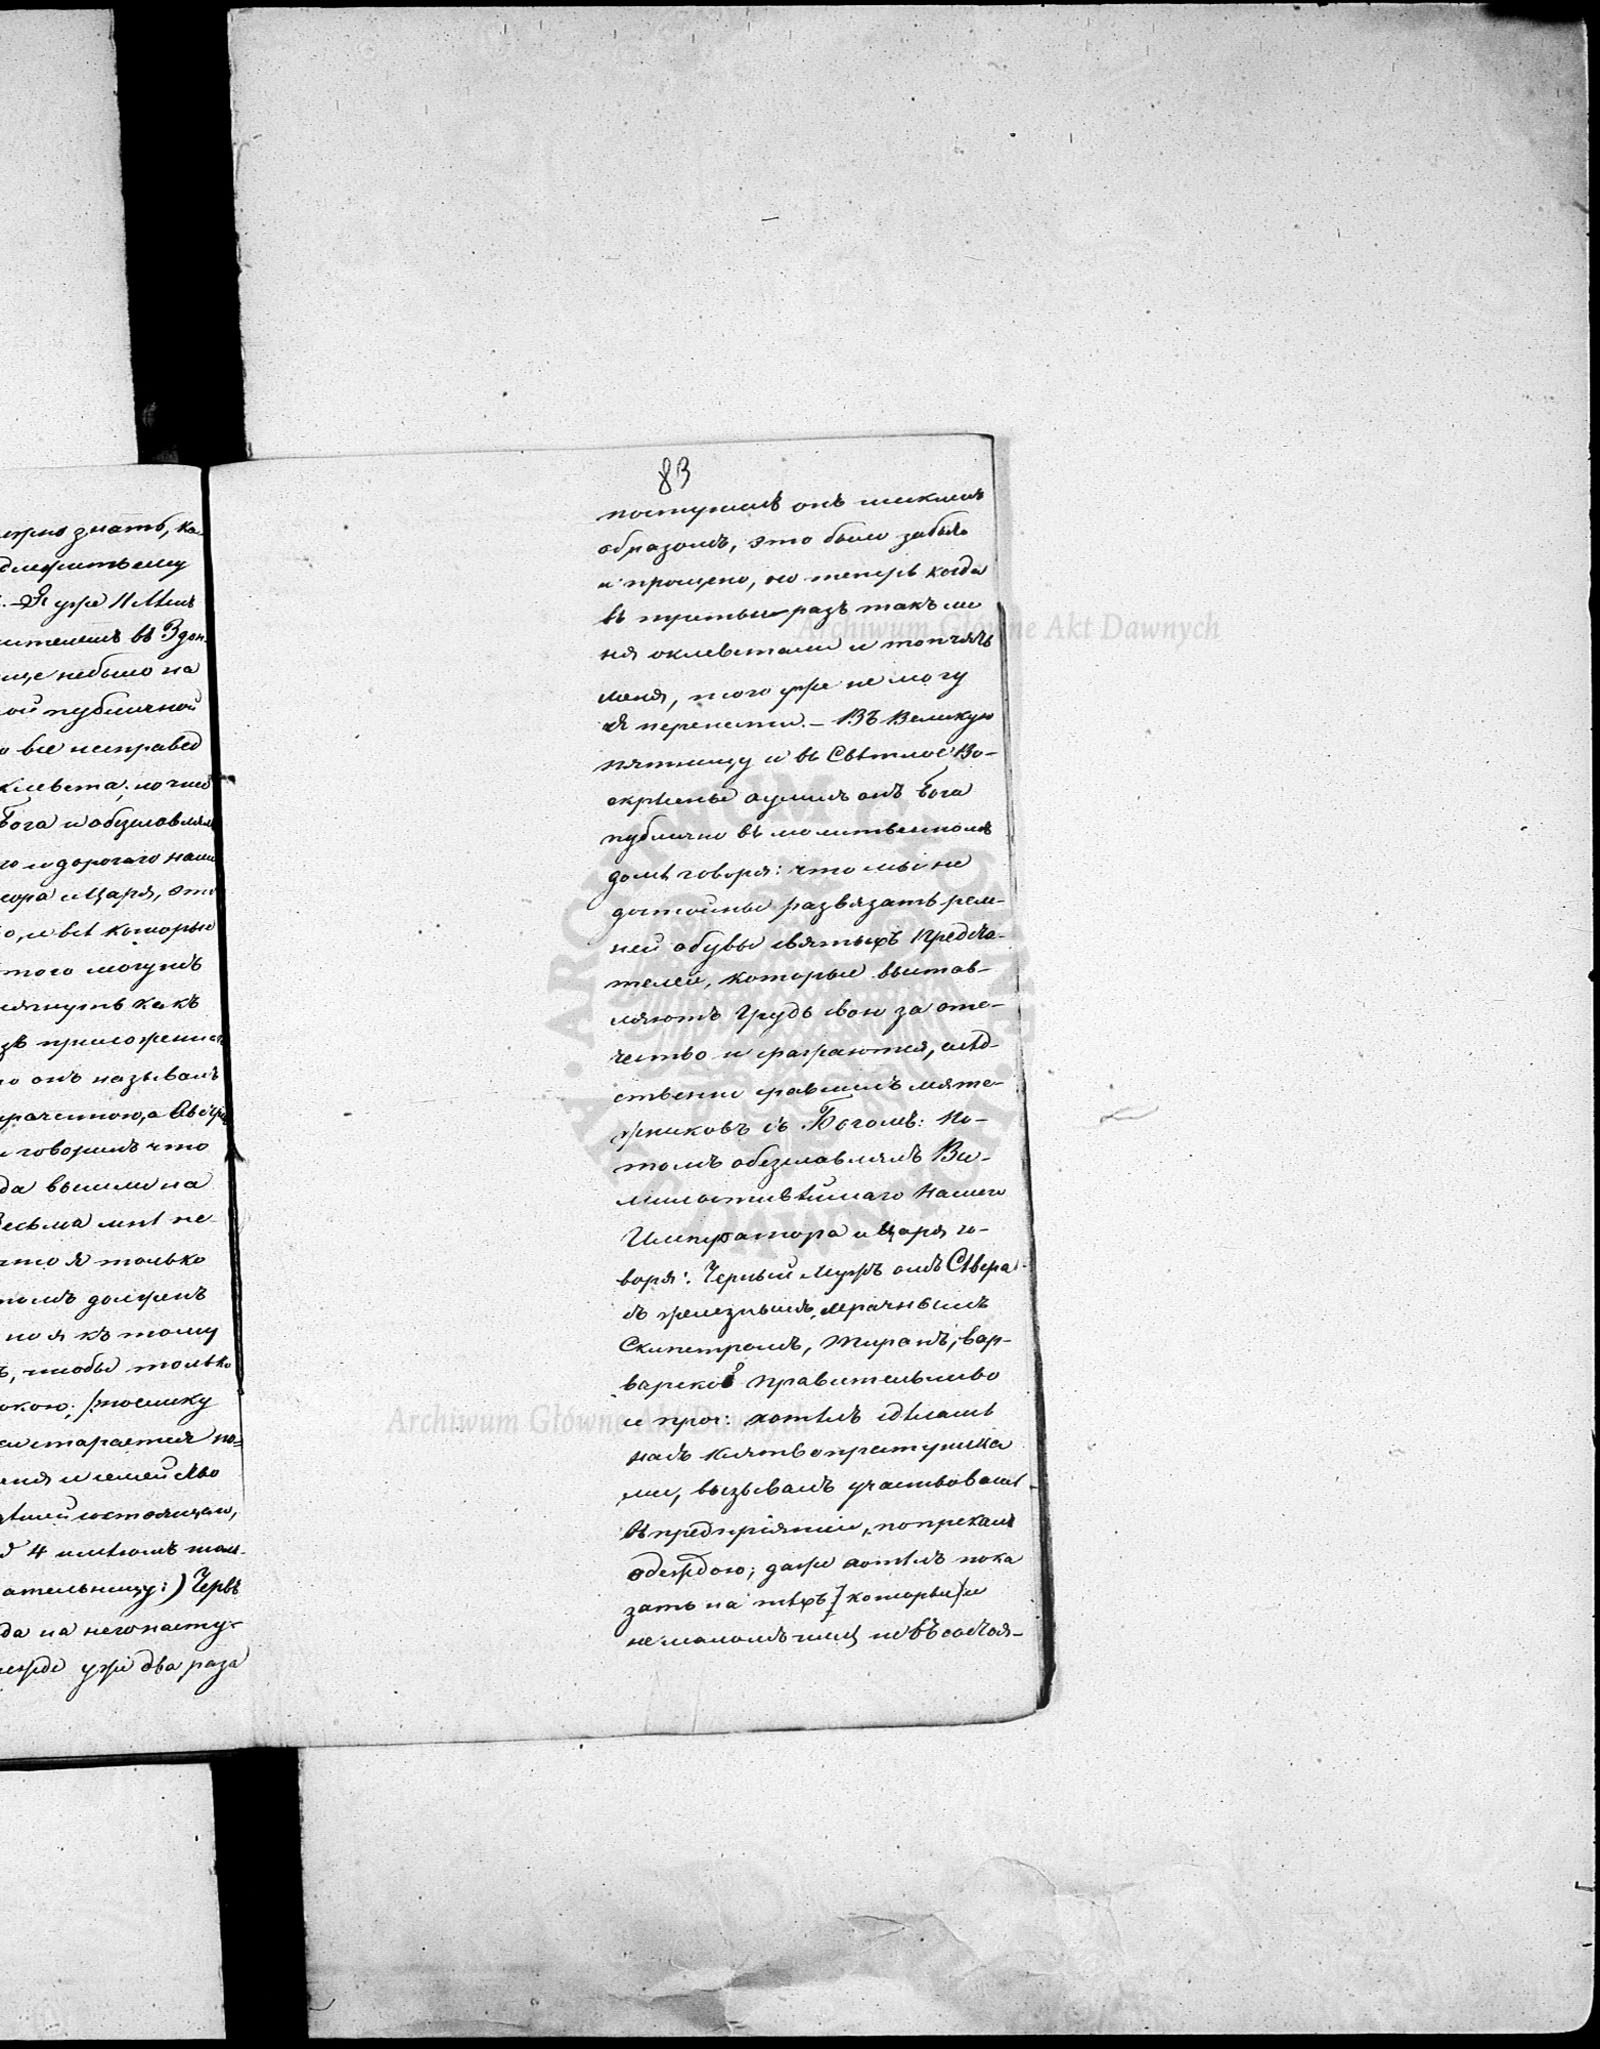 ежно знать, ка-
длежитъ ему
. – Я уже 11 лѣтъ
ителемъ въ Здон-
еще небыло на
ой публичной
о все несправед
клевета; но чтоб
Бога и обезславлялъ
го и дорогаго наш
тора и Царя, это
о, и всѣ которые
того могутъ
сягнуть какъ
зъ приложенія
но онъ называлъ
говорилъ что
да вышли на
Весьма мнѣ не-
что я только
томъ долженъ
но я къ тому
ъ, чтобы только
окою; /поелику
старается по-
еня и семейство
ѣтей состоящаго,
я 4 имѣютъ
ательницу:) Червь
да на него насту-
ежде уже два раза
83
поступилъ онъ такимъ
образомъ, это было забыто
и прощено, но теперь когда
въ третьи разъ такъ ме
ня оклеветали и топчатъ
меня, того уже не могу
я перенести. – Въ Великую
пятницу и въ Свѣтлое Во-
скрѣсенье хулилъ онъ Бога
публично въ молитвенномъ
домѣ говоря: что мы не
достойны развязать рем-
ней обувы святыхъ Предста-
телей, которые выстав-
ляютъ грудь свою за оте-
чество и сражаются, слѣд-
ственно равнилъ мяте-
жниковъ съ Богомъ: По-
томъ обезславлялъ Все-
милостивѣйшаго нашего
Императора и Царя го-
воря: Черный мужъ отъ Сѣвера
съ железнымъ, мрачнымъ
Скипетромъ, тиранъ, вар-
варское правительство
и проч: хотѣлъ сдѣлать
насъ клятвопреступника
ми, вызывалъ участвовать
въ предпріятіи, попрекалъ
одеждою; даже хотѣлъ пока
зать на тѣхъ которые
не малолѣтны не въ состоя-
Archiwum Główne Akt Dawnych
Archiwum Główne Akt Dawnych